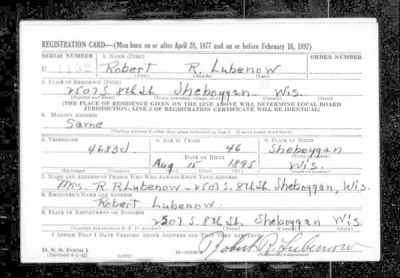 REGISTRATION CARD—(Men born on or after April 28, 1877 and on or before February 16, 1897)
SERIAL NUMBER 1. NAME (Print) ORDER NUMBER
U Robert R. Lubenow
(First) (Middle) (Last)
2. PLACE OF RESIDENCE (Print)
2507 S. 8th St. Sheboygan Wis.
(Number and street) (Town, township, village, or city) (County) (State)
[THE PLACE OF RESIDENCE GIVEN ON THE LINE ABOVE WILL DETERMINE LOCAL BOARD
JURISDICTION; LINE 2 OF REGISTRATION CERTIFICATE WILL BE IDENTICAL]
3. MAILING ADDRESS
Same
[Mailing address if other than place indicated on line 2. If same insert word same]
4. TELEPHONE 5. AGE IN YEARS 6. PLACE OF BIRTH
4683J. 46 Sheboygan
DATE OF BIRTH
Aug 15 1895 Wis.
7. NAME AND ADDRESS OF PERSON WHO WILL ALWAYS KNOW YOUR ADDRESS
Mrs. R. R Lubenow - 2507 S. 8th St. Sheboygan, Wis.
8. EMPLOYER'S NAME AND ADDRESS
Robert Lubenow.
9. PLACE OF EMPLOYMENT OR BUSINESS
2507 S. 8th St. Sheboygan Wis.
(Number and street or R. F. D. number) (Town) (County) (State)
I AFFIRM THAT I HAVE VERIFIED ABOVE ANSWERS AND THAT THEY ARE TRUE.
D. S. S. Form 1
(Revised 4-1-42) Robert R. Lubenow